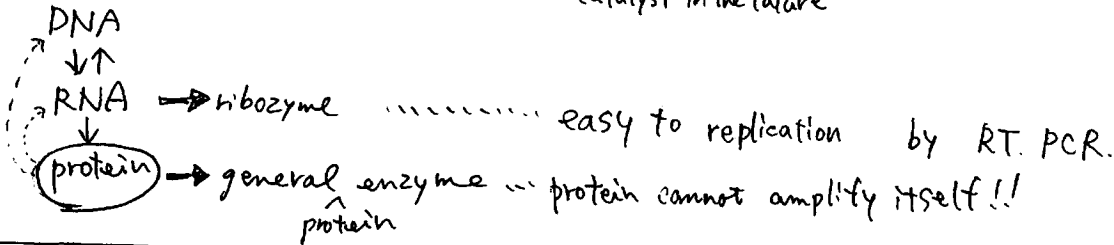 catalyst in the future
DNA
↓↑
RNA → ribozyme ........... easy to replication by RT. PCR.
↓
protein → general enzyme ... protein cannot amplify itself!!
^
protein